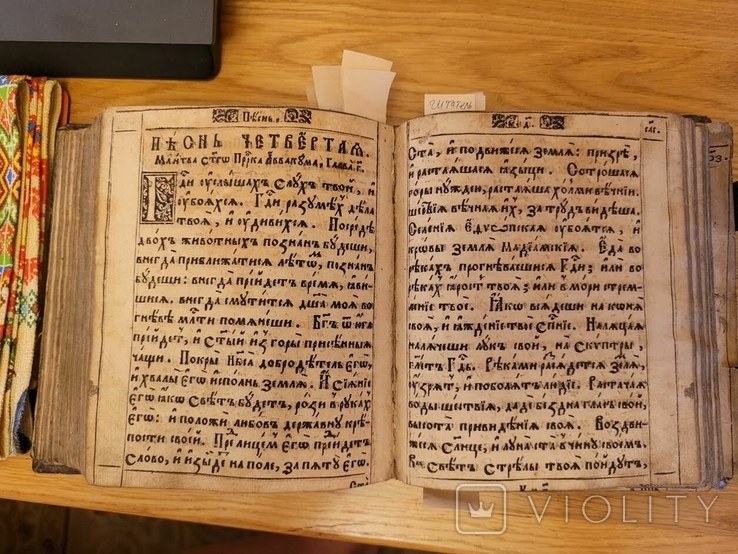 Пѣснь,
ПѢСНЬ ЧЕТВЕРТАЯ.
Мл҃итва ст҃гѡ Пр҇рка Аввакума, Глава г҃.
Гд҇и оуслышахъ слухъ твой, и
оубояхся. Гд҇и разумѣхъ дѣла
твоя, и оудивихся. Посредѣ
двохъ животныхъ познанъ будеши,
внегда приближатися лѣтѡмъ, познанъ
будеши: внегда прїйдетъ время, явиши
шися. внегда смутится дш҃а моя во
гнѣвѣ мл҇ти помянеши. Бг҃ъ ѿ юга
прїйдетъ, и ст҃ый из горы присѣнныя
чащи. Покры Нб҃са добродѣтель Егѡ,
и хвалы Егѡ исполнь земля. И сїянїе
Егѡ якѡ свѣтъ будетъ, рози в рукахъ
Егѡ: и положи любовъ державну крѣ-
пости своей. Пред лицемъ Егѡ прейдетъ
слово, и изыде на поле, за пяту Егѡ.
ста, и подвижеся земля: призрѣ,
и растаяшася языцы. Сотрошася
горы нужден, растаяша холми вѣчнїи
шествїя вѣчная ихъ, за трудъ видѣша.
Селенїя Едїопская оубоятся, и
кровы земля Мадїамскїя. Еда во
рѣкахъ прогнѣваешися Гд҇и; или во
рѣкахъ ярость твоя; или в мори стрем-
ленїе твое. Якѡ всядеши на коня
своя, и яжденїе твое сп҃сенїе. Наляцая
налячеши лукъ свой, на скуптры,
гл҃етъ Гд҇ь. Рѣками разсядется земля,
оузрятъ, и поболятъ людїе. Расточая
воды шествїя, даде бездна гласъ свой,
высота привидѣнїя своя. Воздви-
жеся слнце, и луна ста в чину своемъ.
Во свѣтъ стрѣлы твоя пойдутъ,
VIOLITY